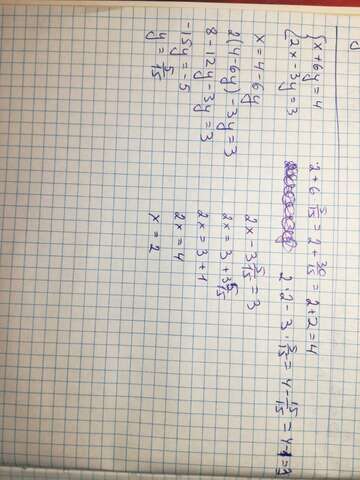 {x + 6y = 4
{2x - 3y = 3
x = 4 - 6y
2(4 - 6y) - 3y = 3
8 - 12y - 3y = 3
-15y = -5
y = 5/15
2x - 3 5/15 = 3
2x = 3 + 3 5/15
2x = 3 + 1
2x = 4
x = 2
2 + 6 · 5/15 = 2 + 30/15 = 2 + 2 = 4
2 · 2 - 3 · 5/15 = 4 - 15/15 = 4 - 1 = 3